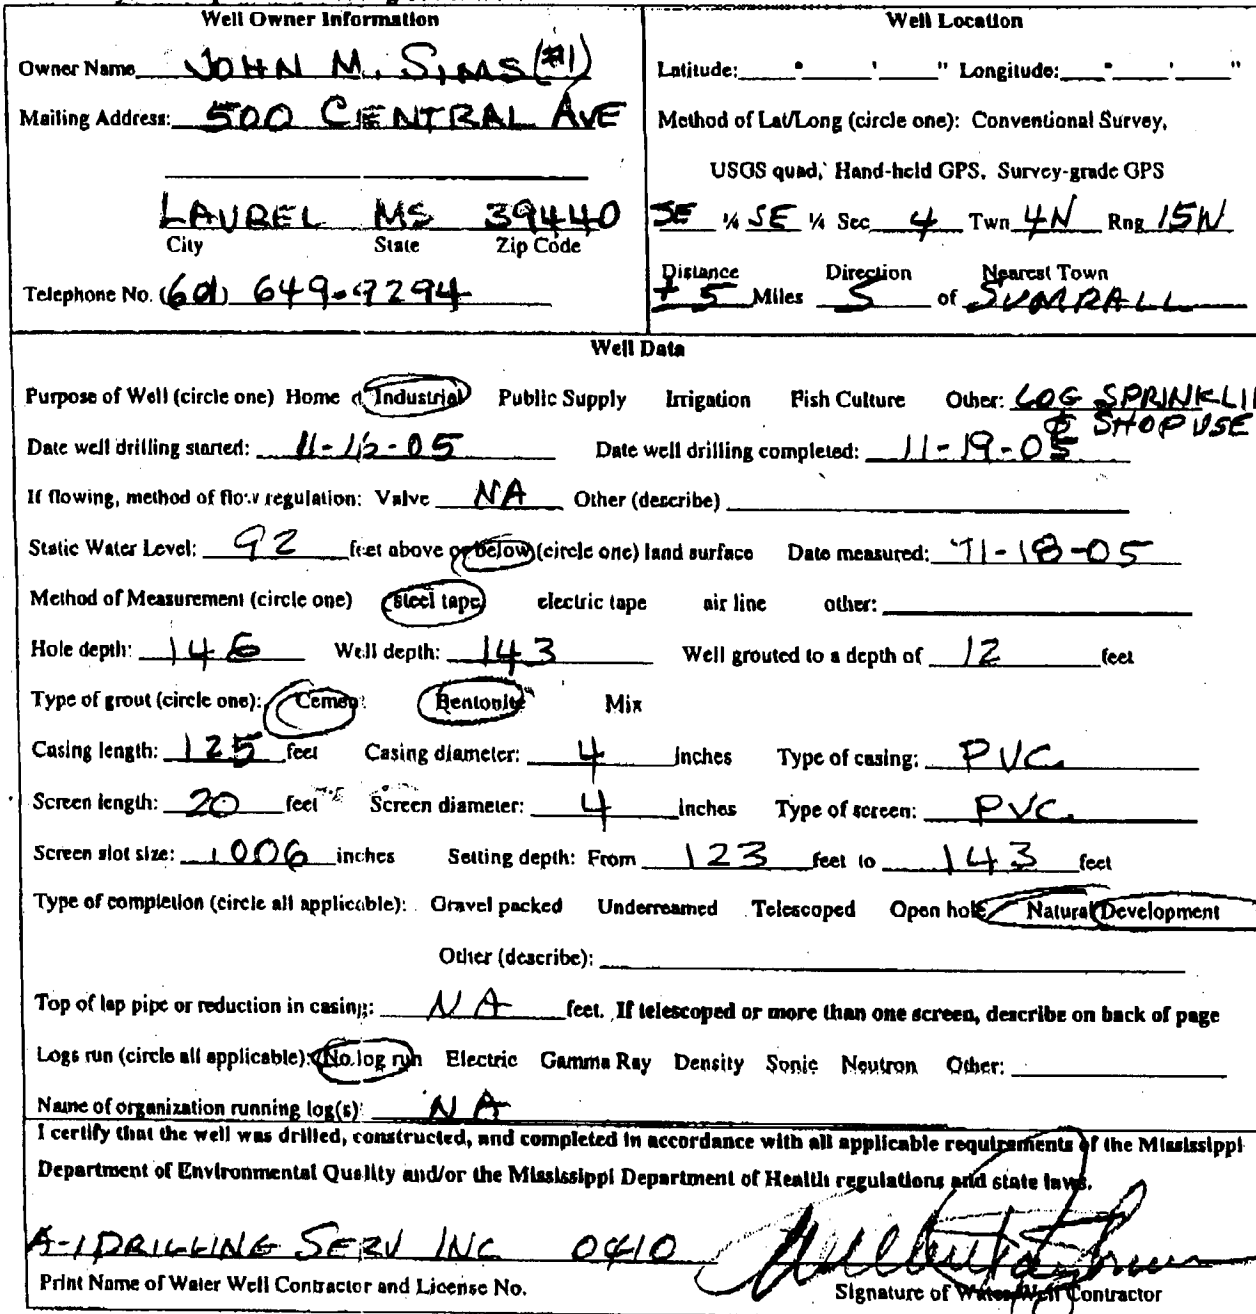 Well Owner Information
Owner Name JOHN M. SIMS (#1)
Mailing Address: 500 CENTRAL AVE
LAUREL MS 39440
City State Zip Code
Telephone No. (601) 649-9294
Well Location
Latitude: ° ' " Longitude: ° ' "
Method of Lat/Long (circle one): Conventional Survey,
USGS quad, Hand-held GPS, Survey-grade GPS
SE ¼ SE ¼ Sec 4 Twn 4N Rng 15W
Distance Direction Nearest Town
± 5 Miles S of SUMRALL
Well Data
Purpose of Well (circle one) Home Industrial Public Supply Irrigation Fish Culture Other: LOG SPRINKLI
& SHOP USE
Date well drilling started: 11-15-05 Date well drilling completed: 11-19-05
If flowing, method of flow regulation: Valve NA Other (describe)
Static Water Level: 92 feet above or below (circle one) land surface Date measured: 11-18-05
Method of Measurement (circle one) steel tape electric tape air line other:
Hole depth: 146 Well depth: 143 Well grouted to a depth of 12 feet
Type of grout (circle one): Cement Bentonite Mix
Casing length: 125 feet Casing diameter: 4 inches Type of casing: PVC
Screen length: 20 feet Screen diameter: 4 inches Type of screen: PVC
Screen slot size: .006 inches Setting depth: From 123 feet to 143 feet
Type of completion (circle all applicable): Gravel packed Underreamed Telescoped Open hole Natural Development
Other (describe):
Top of lap pipe or reduction in casing: NA feet. If telescoped or more than one screen, describe on back of page
Logs run (circle all applicable): No log run Electric Gamma Ray Density Sonic Neutron Other:
Name of organization running log(s): NA
I certify that the well was drilled, constructed, and completed in accordance with all applicable requirements of the Mississippi
Department of Environmental Quality and/or the Mississippi Department of Health regulations and state laws.
A-1 DRILLING SERV INC 0410
Print Name of Water Well Contractor and License No.
Signature of Water Well Contractor